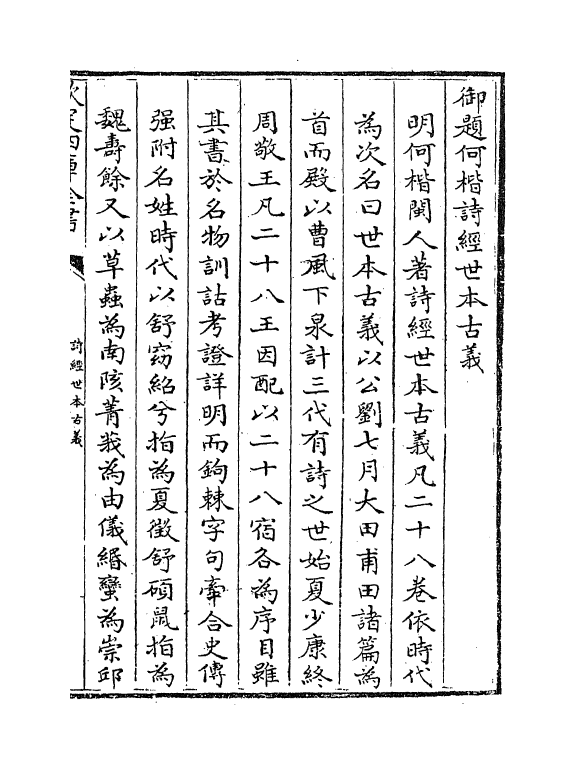 御題何楷詩經世本古義
明何楷閩人著詩經世本古義凡二十八卷依時代
為次名曰世本古義以公劉七月大田甫田諸篇為
首而殿以曹風下泉計三代有詩之世始夏少康終
周敬王凡二十八王因配以二十八宿各為序目雖
其書於名物訓詁考證詳明而鉤棘字句牽合史傳
强附名姓時代以舒窈紹兮指為夏徵舒碩鼠指為
魏壽餘又以草蟲為南陔菁莪為由儀緡蠻為崇邱
欽定四庫全書
詩經世本古義